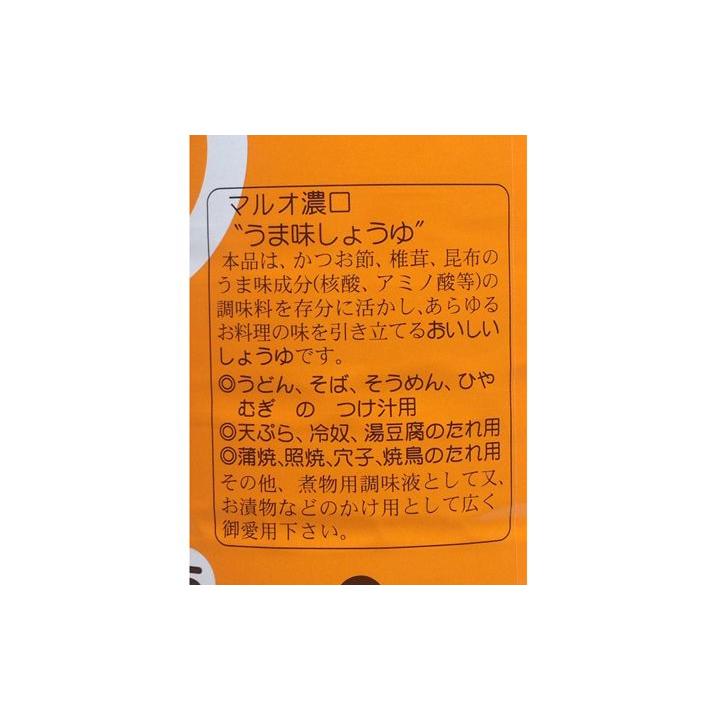 マルオ濃口
“うま味しょうゆ”
本品は、かつお節、椎茸、昆布の
うま味成分(核酸、アミノ酸等)の
調味料を存分に活かし、あらゆる
お料理の味を引き立てるおいしい
しょうゆです。
◎うどん、そば、そうめん、ひや
むぎ の つけ汁用
◎天ぷら、冷奴、湯豆腐のたれ用
◎蒲焼、照焼、穴子、焼鳥のたれ用
その他、煮物用調味液として又、
お漬物などのかけ用として広く
御愛用下さい。